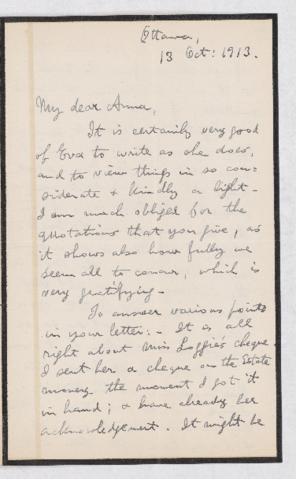 Ottawa,
13 Oct: 1913.
My dear Anna,
It is certainly very good
of Eva to write as she does,
and to view things in so con-
siderate & kindly a light-
I am much obliged for the
quotations that you give, as
it shows also how fully we
seem all to concur, which is
very gratifying-
To answer various points
in your letter:- It is all
right about Miss Loggie's cheque.
I sent her a cheque on the Estate
money the moment I got it
in hand; & have already her
acknowledgement. It might be